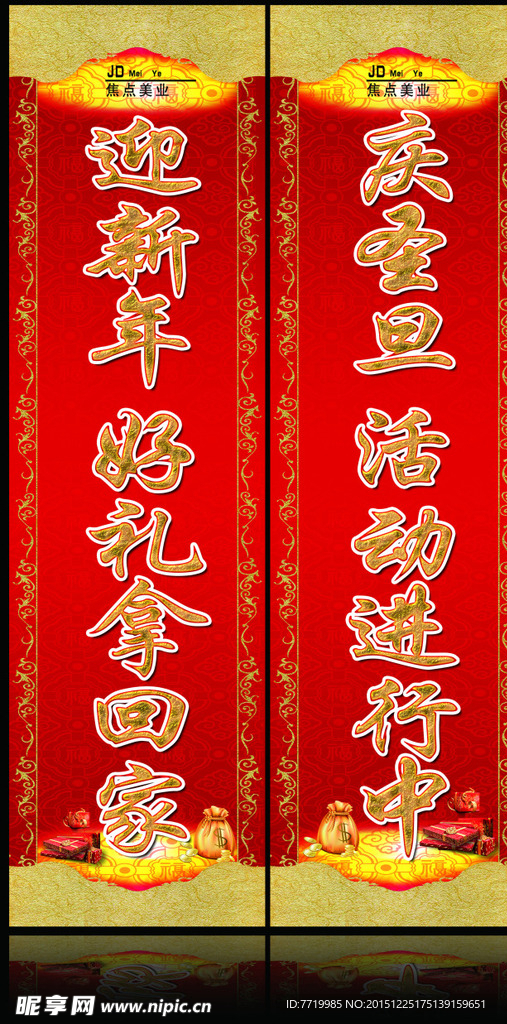 JD Mei Ye
焦点美业
迎新年 好礼拿回家
JD Mei Ye
焦点美业
庆圣旦 活动进行中
昵享网 www.nipic.cn
ID:7719985 NO:20151225175139159651